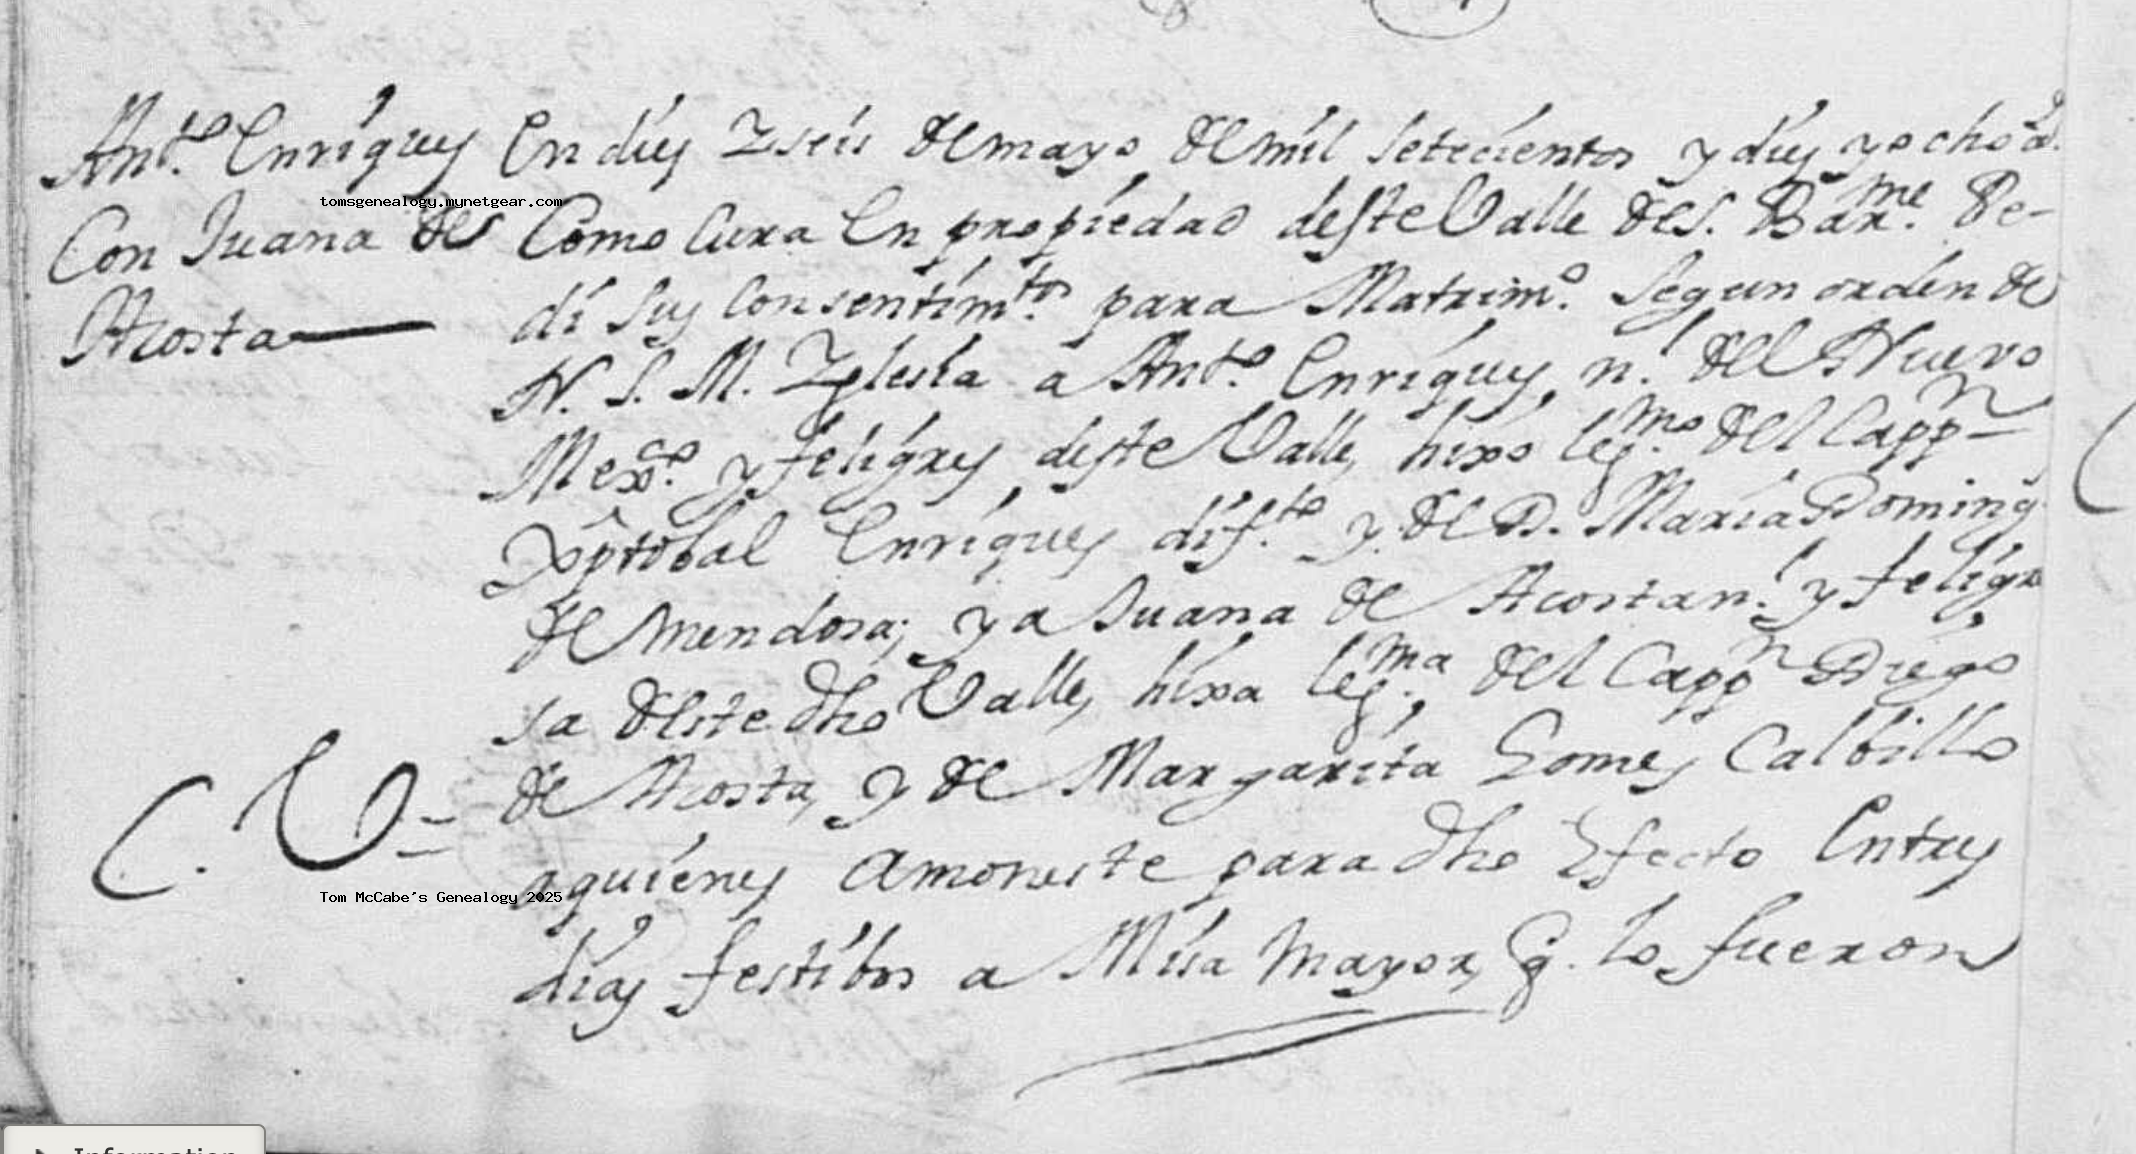 Ant.º Enriques
Con Juana de
Acosta
En dies Yseis de mayo de mil setecientos y dies yocho a.ˢ
Como Cura En propiedad deste Valle de S. Bar.ᵐᵉ Pe-
di sus Consentim.ᵗᵒˢ para Matrim.º Segun orden de
N. S. M. Yglesia a Ant.º Enriques, n.ˡ del Nuevo
Mex.ᶜᵒ y feligres deste Valle, hixo leg.ᵐᵒ del Capp.ⁿ
Xptobal Enriques dif.ᵗᵒ y de D. Maria Doming.
de mendosa; y a Juana de Acosta n.ˡ y feligre
sa deste dho Valle, hixa leg.ᵐᵃ del Capp.ⁿ Diego
de Acosta, y de Margarita Gomes Calbillo
aquienes amoneste para dho Efecto Entres
dias festibos a Misa mayor, q. lo fueron
C. V=
tomsgenealogy.mynetgear.com
Tom McCabe's Genealogy 2025
Information